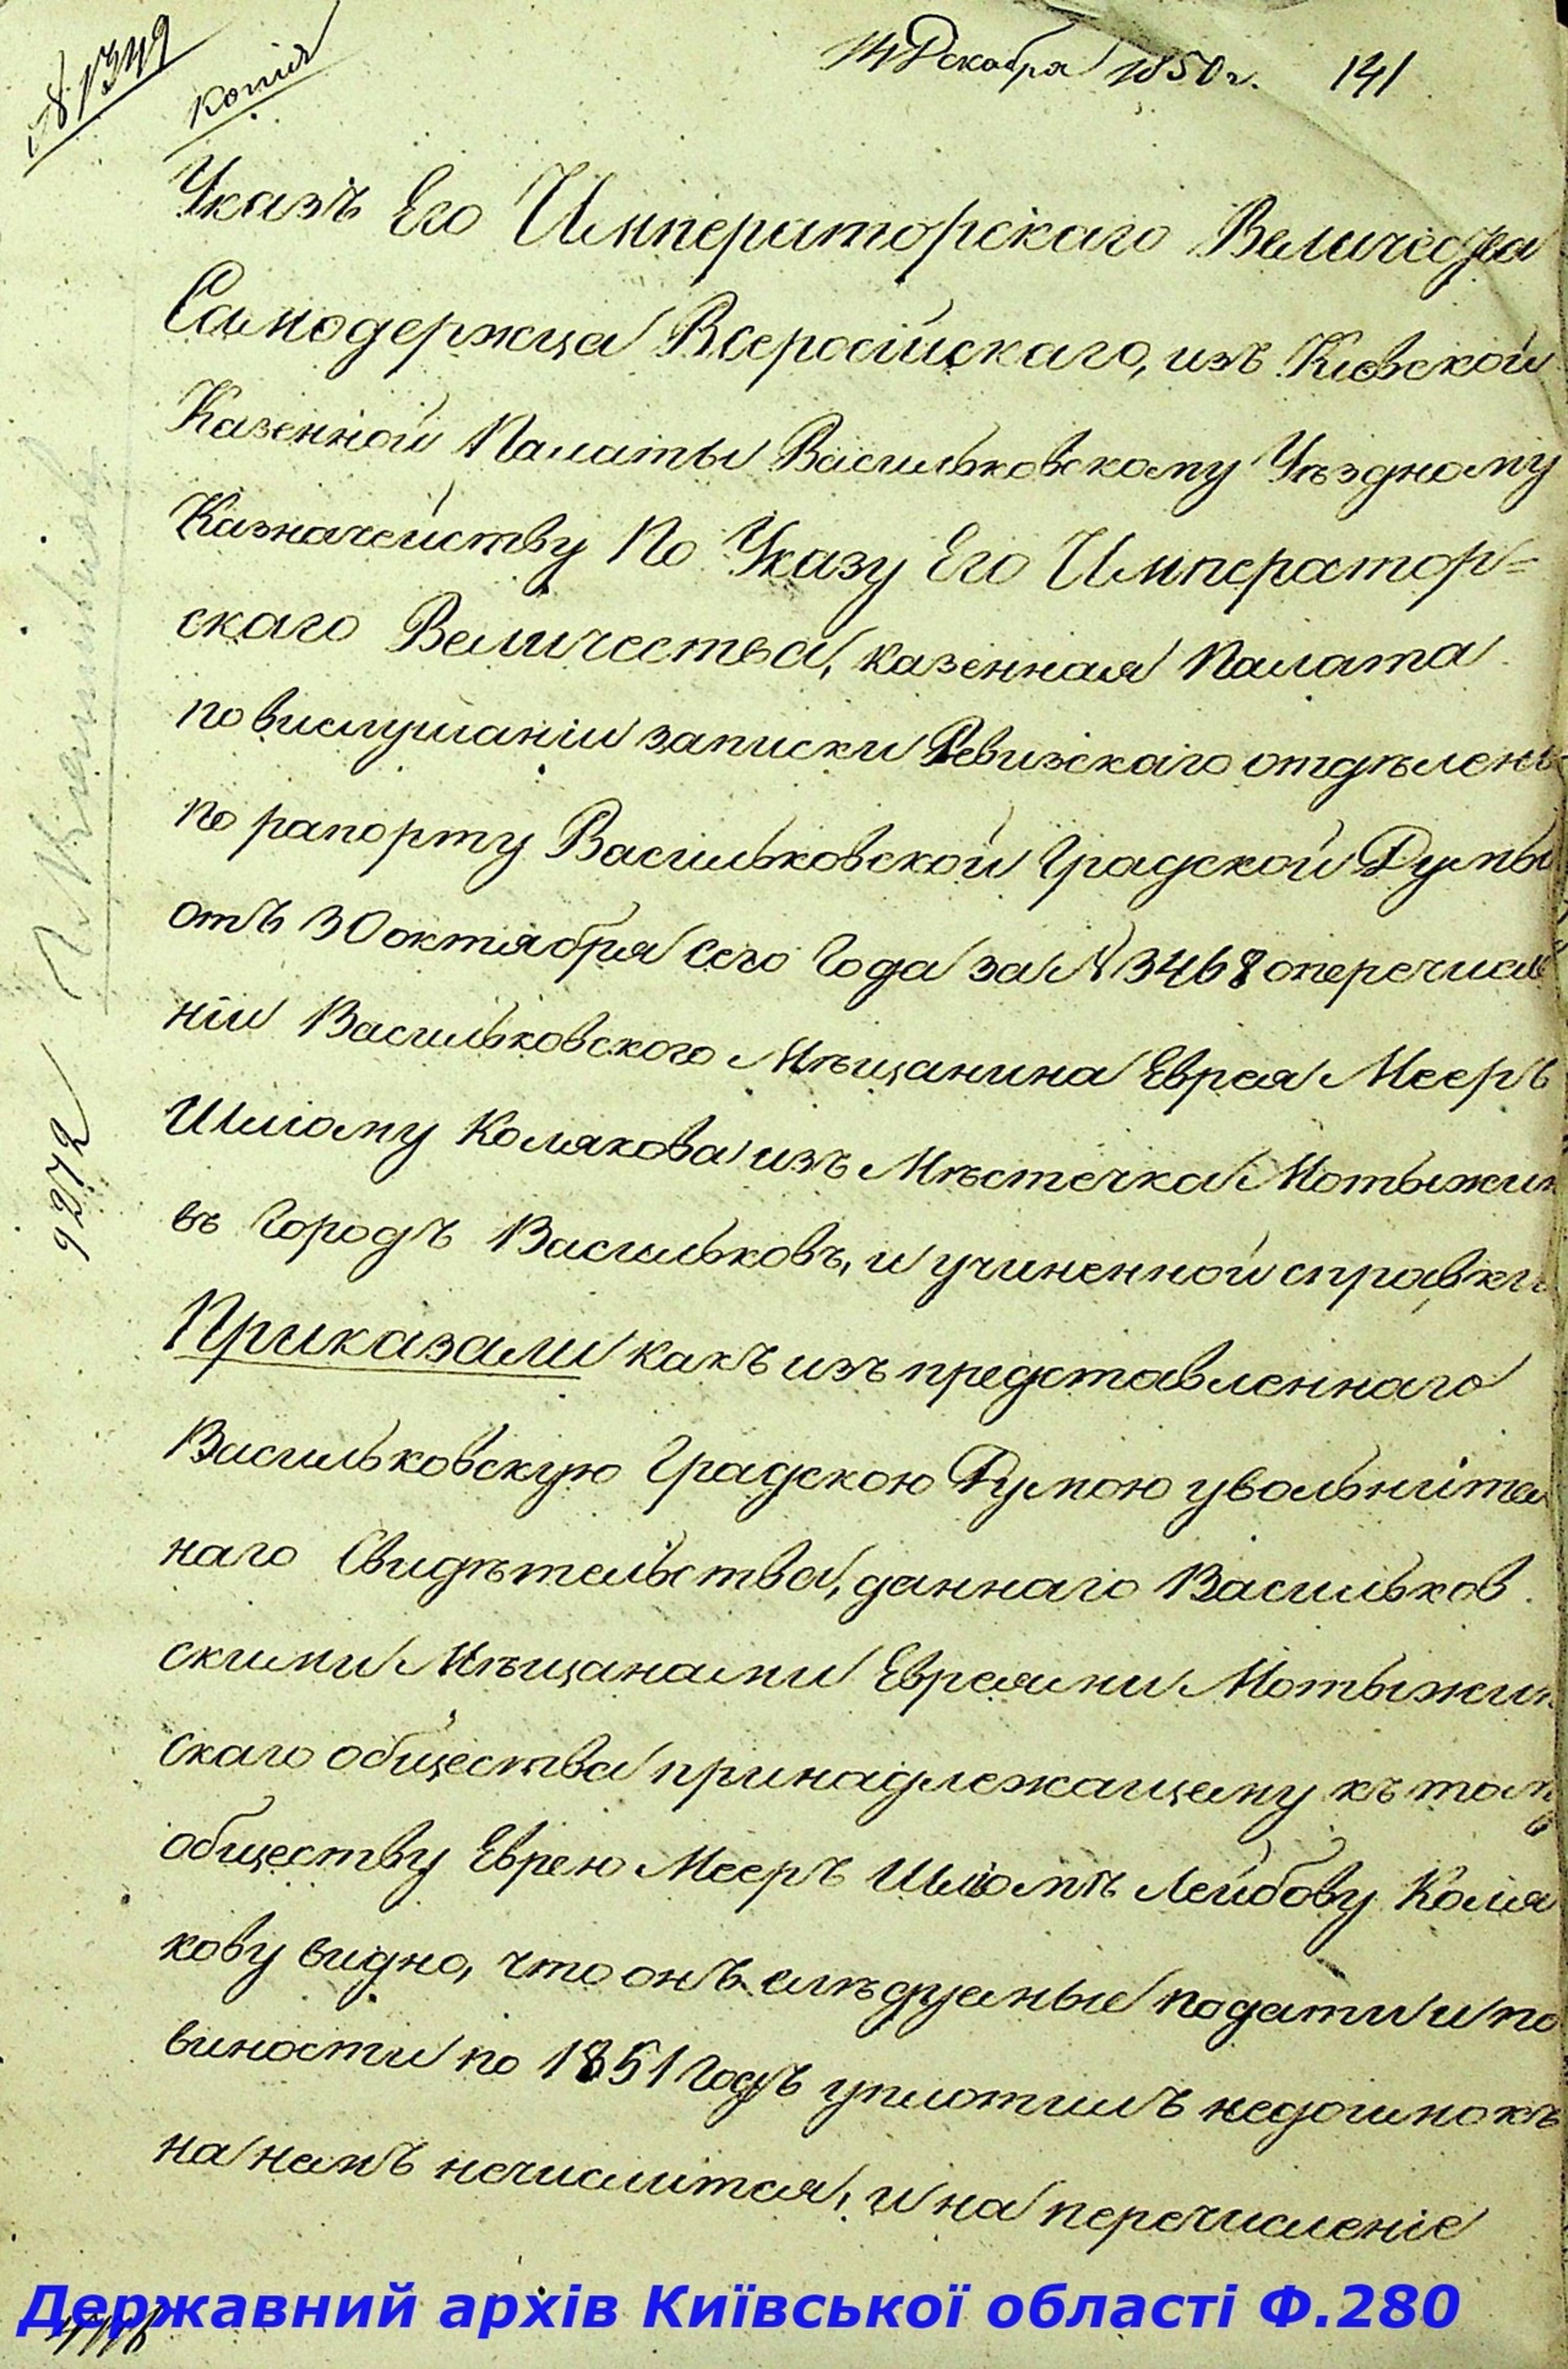 1349
копия
14 Декабря 1850 г. 141
Указъ Его Императорскаго Величества
Самодержца Всеросийскаго, изъ Киевской
Казенной Палаты Васильковскому Уѣздному
Казначейству По Указу Его Император=
скаго Величества, казенная Палата
по вислушаніи записки Ревизскаго отдѣлені
по рапорту Васильковской Градской Думы
отъ 30 октября сего Года за № 3468 о перечисле
ніи Васильковского Мѣщанина Еврея Мееръ
Шліому Колякова изъ Мѣстечка Мотыжин
въ Городъ Васильковъ, и учиненной справки
Приказали какъ изъ представленнаго
Васильковскую Градскою Думою увольнител
наго Свидѣтельства, даннаго Васильков
скими Мѣщанами Евреями Мотыжин
скаго общества принадлежащему къ тому
обществу Еврею Мееръ Шліомѣ Лейбову Коля
кову видно, что онъ слѣдуемые подати и по
виности по 1851 Годъ уплотилъ недоимокъ
на немъ нечислится, и на перечисленіе
9272
Державний архів Київської області Ф.280